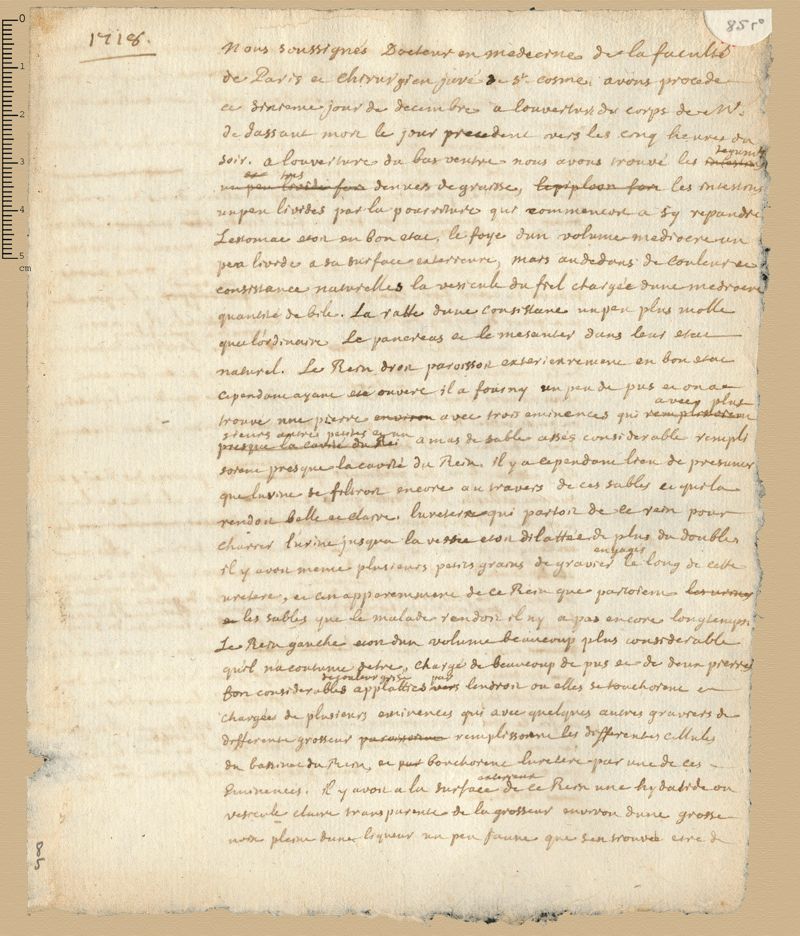 85 r°
1718.
Nous soussignés Docteur en medecine de la faculté
de Paris et chirurgien juré de St. cosme, avons procede
ce sixieme jour de decembre a louverture du corps de Mr.
de dassaut mort le jour precedent vers les cinq heures du
soir. a louverture du bas ventre nous avons trouvé les
un peu denues de graisse, lepiploon fort les intestins
un peu livides par la pourriture qui commencoit a sy repandre
Lestomac etoit en bon etat, le foye dun volume mediocre un
peu livide a sa surface exterieure, mais audedans de couleur et
consistance naturelles la vesicule du fiel chargée dune mediocre
quantité de bile. La ratte dune consistance un peu plus molle
qua lordinaire Le pancreas et le mesanter dans leur etat
naturel. Le Rein droit paroissoit exterieurement en bon etat
cependant ayant eté ouvert il a fourny un peu de pus et on a
avec plu
trouvé une pierre environ avec trois eminences qui remplissoient
sieurs autres petites et un
presque la cavité du Rei amas de sable assés considerable rempli
soient presque la cavité du Rein. il y a cependant lieu de presumer
que lurine se filtroit encore au travers de ces sables et quil la
rendoit belle et claire. luretere qui partoit de ce rein pour
charrier lurine jusqua la vessie etoit dilattée de plus du double
engagés
il y avoit meme plusieurs petits grains de gravier le long de cette
uretere, et cest apparemment de ce Rein que partoient les urines
et les sables que le malade rendoit il ny a pas encore longtemps.
Le Rein gauche etoit dun volume beaucoup plus considerable
quil na coutume detre, chargé de beaucoup de pus et de deux pierres
de couleur grise par
fort considerables applatties vers lendroit ou elles se touchoient et
chargées de plusieurs eminences qui avec quelques autres graviers de
differente grosseur remplissoient les differentes cellules
du bassinet du Rein, et bouchoient luretere par une de ces
exterieure
Eminences. il y avoit a la surface de ce Rein une hydatide ou
vesicule claire transparente de la grosseur environ dune grosse
noix pleine dune liqueur un peu jaune que sest trouvée etre de